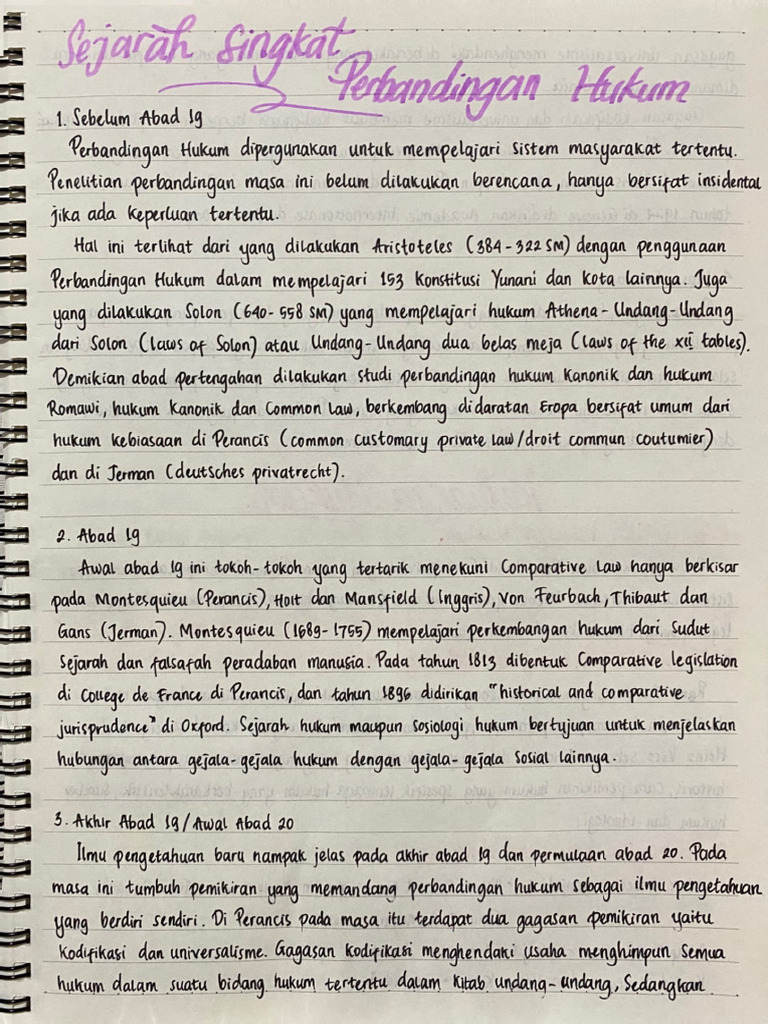 Sejarah Singkat
Perbandingan Hukum
1. Sebelum Abad 19
Perbandingan Hukum dipergunakan untuk mempelajari sistem masyarakat tertentu.
Penelitian perbandingan masa ini belum dilakukan berencana, hanya bersifat insidental
jika ada keperluan tertentu.
Hal ini terlihat dari yang dilakukan Aristoteles (384-322 SM) dengan penggunaan
Perbandingan Hukum dalam mempelajari 153 Konstitusi Yunani dan Kota lainnya. Juga
yang dilakukan Solon (640-558 SM) yang mempelajari hukum Athena-Undang-Undang
dari Solon (laws of Solon) atau Undang-Undang dua belas meja (Laws of the XII tables).
Demikian abad pertengahan dilakukan studi perbandingan hukum Kanonik dan hukum
Romawi, hukum Kanonik dan Common Law, berkembang didaratan Eropa bersifat umum dari
hukum kebiasaan di Perancis (common customary private law/droit commun coutumier)
dan di Jerman (deutsches privatrecht).
2. Abad 19
Awal abad 19 ini tokoh-tokoh yang tertarik menekuni Comparative Law hanya berkisar
pada Montesquieu (Perancis), Hoit dan Mansfield (Inggris), Von Feurbach, Thibaut dan
Gans (Jerman). Montesquieu (1689-1755) mempelajari perkembangan hukum dari sudut
sejarah dan falsafah peradaban manusia. Pada tahun 1813 dibentuk Comparative legislation
di College de France di Perancis, dan tahun 1896 didirikan "historical and comparative
jurisprudence" di Oxford. Sejarah hukum maupun sosiologi hukum bertujuan untuk menjelaskan
hubungan antara gejala-gejala hukum dengan gejala-gejala sosial lainnya.
3. Akhir Abad 19/Awal Abad 20
Ilmu pengetahuan baru nampak jelas pada akhir abad 19 dan permulaan abad 20. Pada
masa ini tumbuh pemikiran yang memandang perbandingan hukum sebagai ilmu pengetahuan
yang berdiri sendiri. Di Perancis pada masa itu terdapat dua gagasan pemikiran yaitu
Kodifikasi dan universalisme. Gagasan Kodifikasi menghendaki usaha menghimpun semua
hukum dalam suatu bidang hukum tertentu dalam Kitab undang-undang, Sedangkan